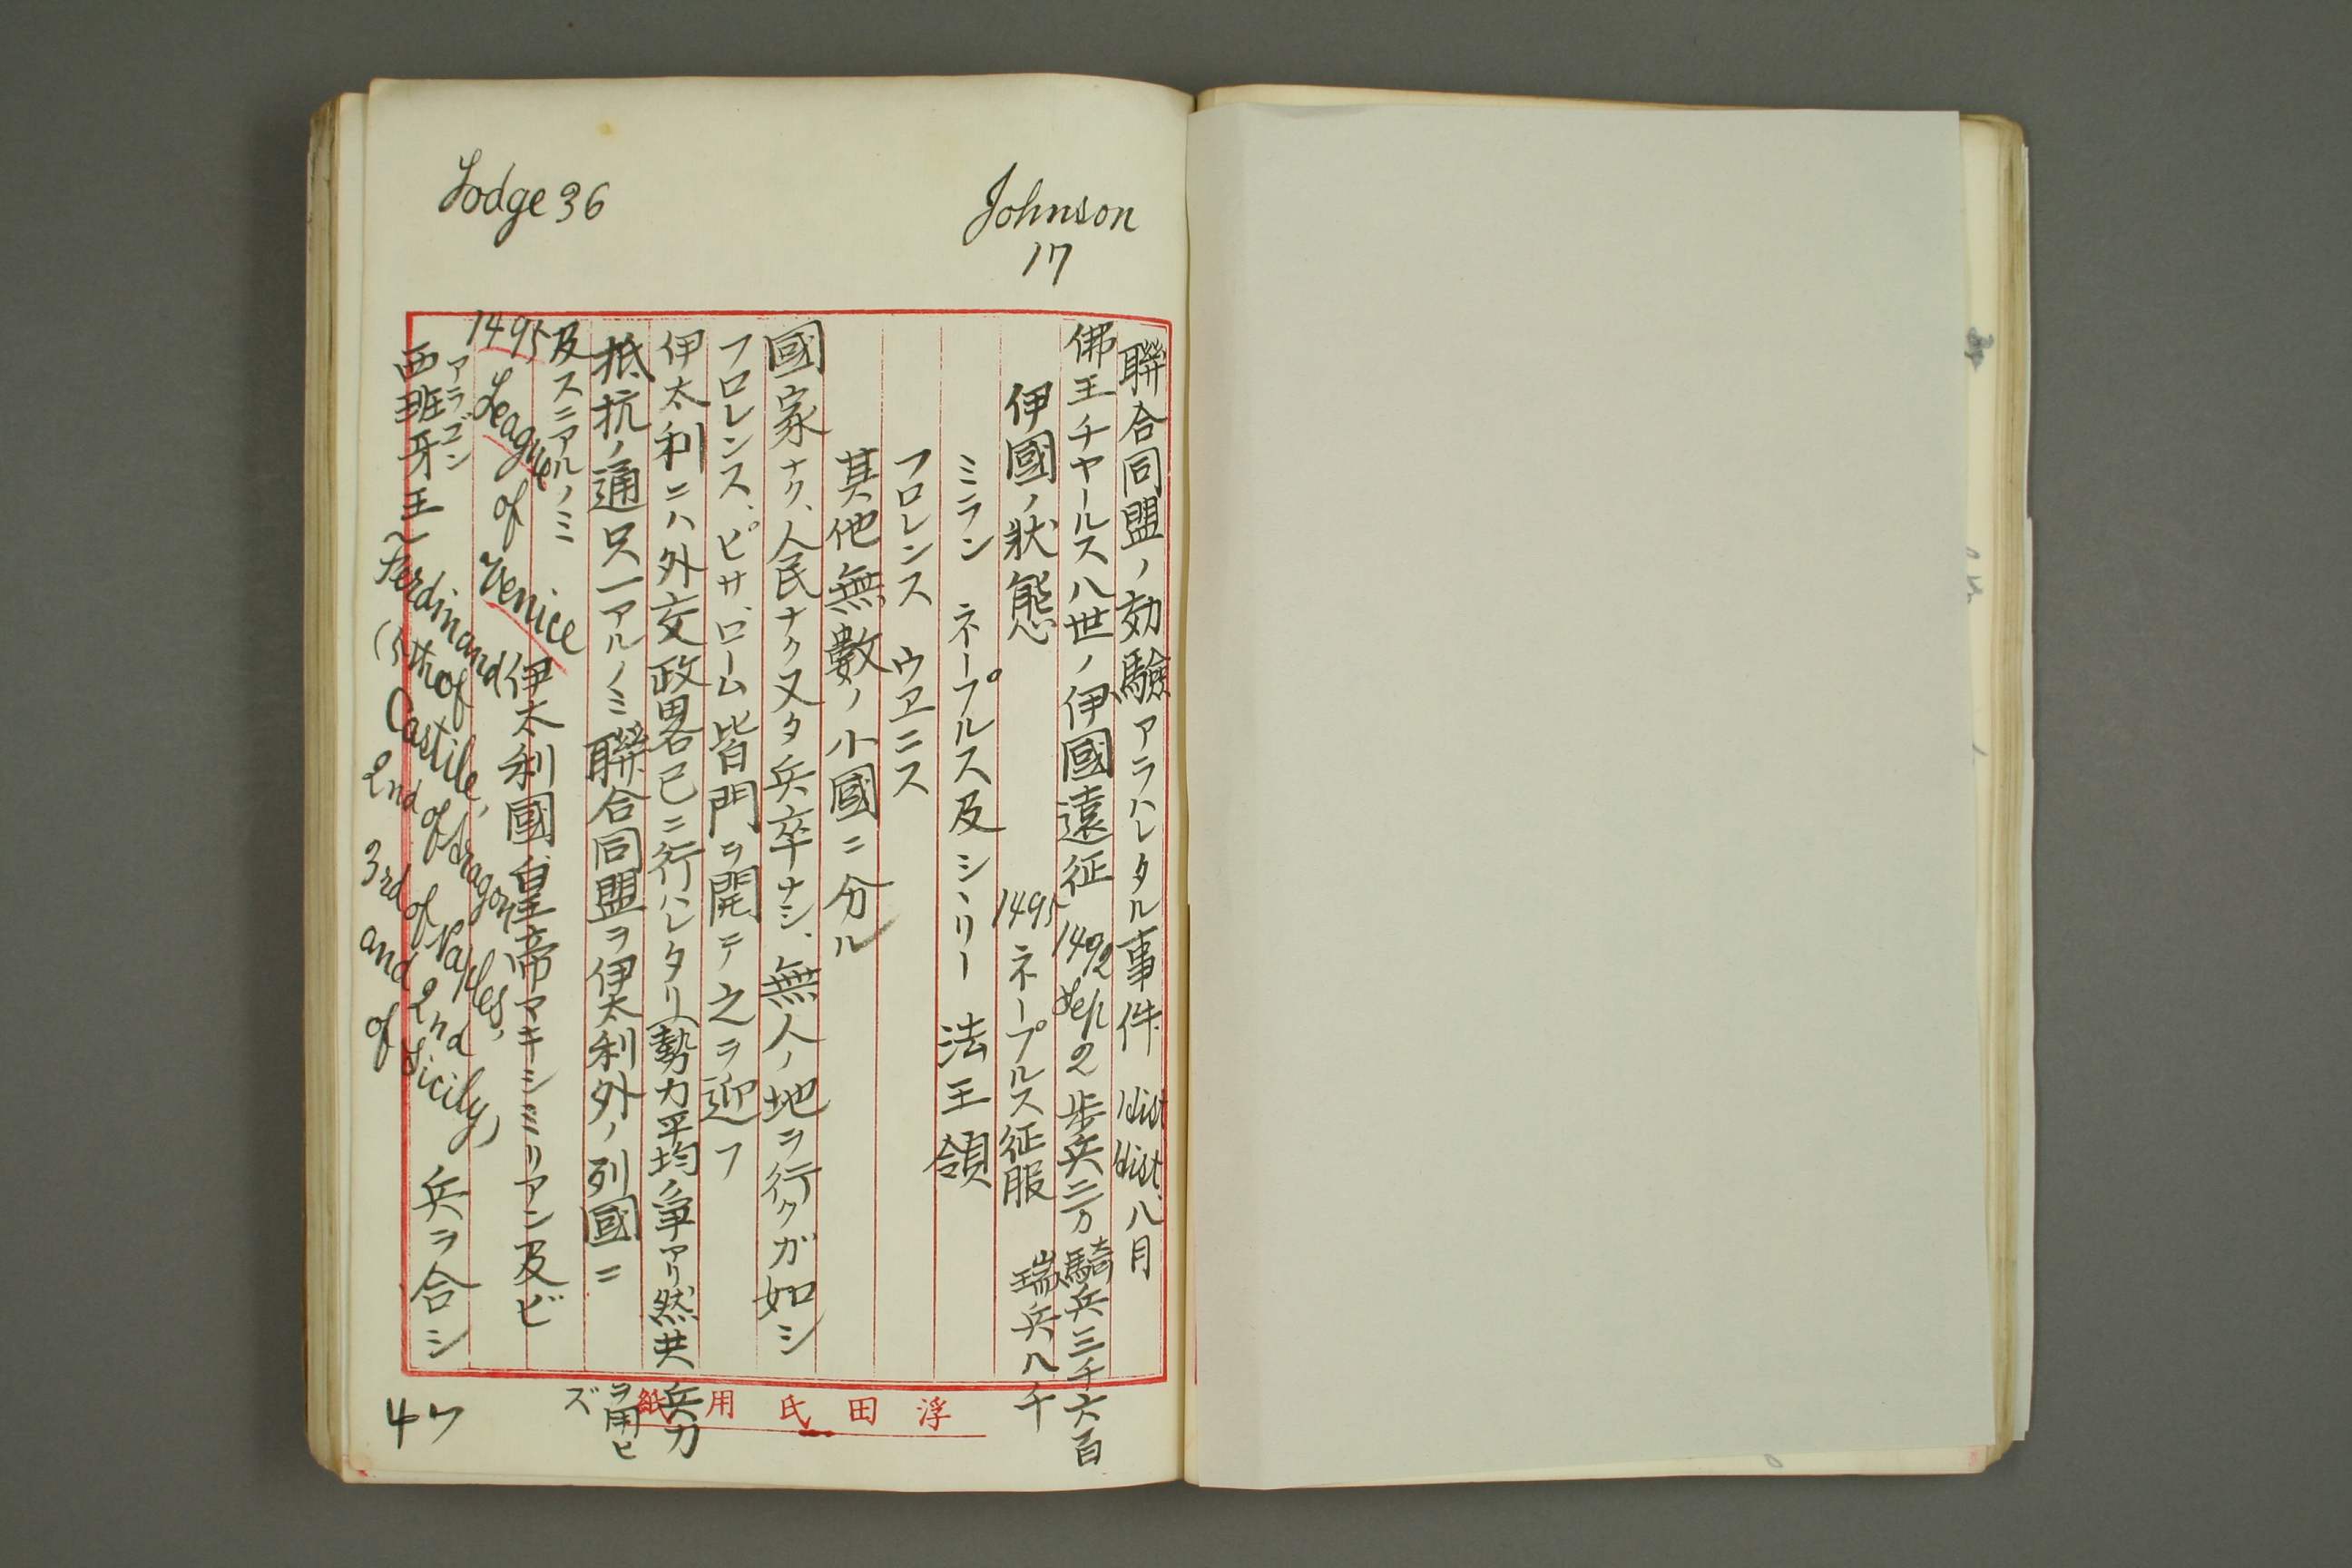 Johnson
17
Lodge 36
聯合同盟ノ効驗アラハレタル事件 Hist Hist. 八月
佛王チヤールス八世ノ伊國遠征 1492 Sep 2 歩兵二万 騎兵三千六百
伊國ノ狀態 1495 ネープルス征服 瑞兵八千
ミラン ネープルス及シヽリー 法王領
フロレンス ウヱニス
其他無數ノ小國ニ分ル
國家ナク、人民ナク又タ兵卒ナシ、無人ノ地ヲ行クガ如シ
フロレンス、ピサ、ローム皆門ヲ開テ之ヲ迎フ
伊太利ニハ外交政畧已ニ行ハレタリ(勢力平均ノ爭アリ然共 兵力ヲ用ヒズ
抵抗ノ通只一アルノミ聯合同盟ヲ伊太利外ノ列國ニ
及スニアルノミ
1495 League of Venice 伊太利國、皇帝マキシミリアン及ビ
アラゴン
西班牙王〜Ferdinand
(5th of Castile,
2nd of Aragon,
3rd of Naples,
and 2nd
of Sicily,
兵ヲ合シ
浮田氏用紙
47